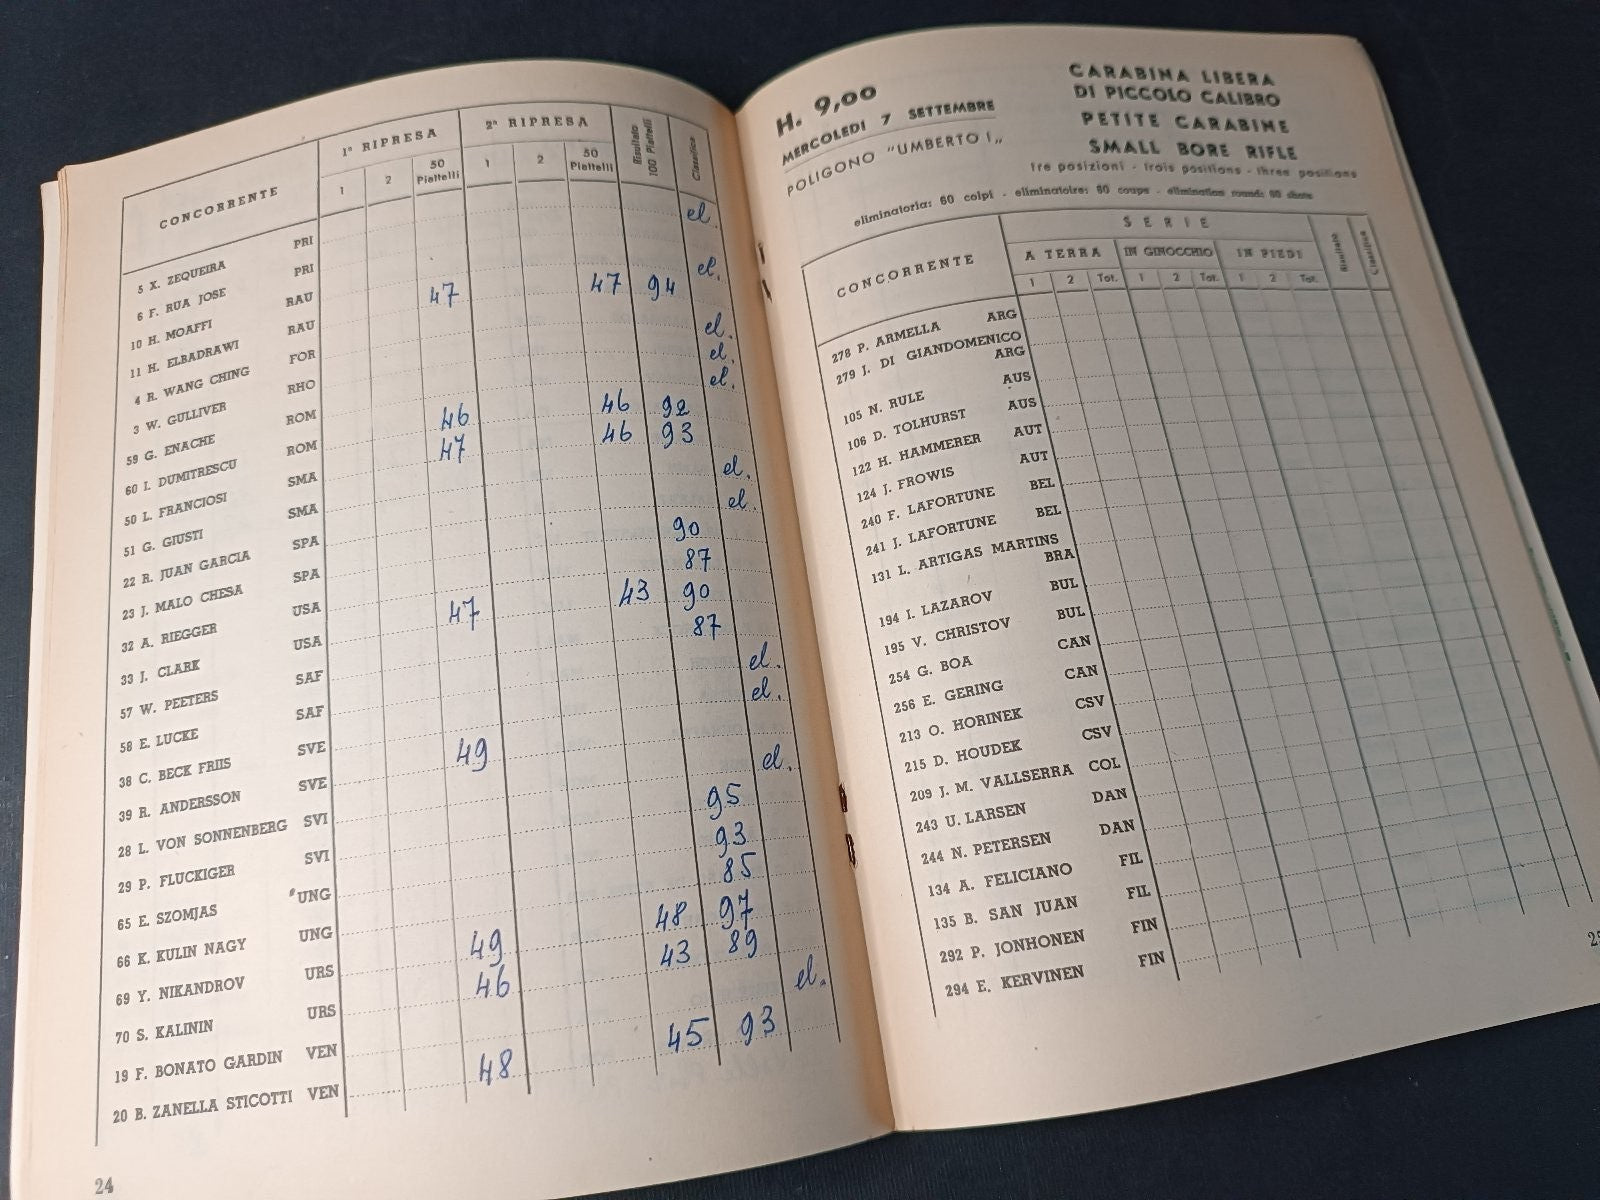 CONCORRENTE 1ª RIPRESA 2ª RIPRESA Risultato 100 Piattelli Classifica
1 2 50 Piattelli 1 2 50 Piattelli
5 X. ZEQUEIRA PRI el.
6 F. RUA JOSE PRI el.
10 H. MOAFFI RAU 47 47 94
11 H. ELBADRAWI RAU el.
4 R. WANG CHING FOR el.
3 W. GULLIVER RHO el.
59 G. ENACHE ROM 46 46 92
60 I. DUMITRESCU ROM 47 46 93
50 L. FRANCIOSI SMA el.
51 G. GIUSTI SMA el.
22 R. JUAN GARCIA SPA 90
23 J. MALO CHESA SPA 87
32 A. RIEGGER USA 47 43 90
33 J. CLARK USA 87
57 W. PEETERS SAF el.
58 E. LUCKE SAF el.
38 C. BECK FRIIS SVE
39 R. ANDERSSON SVE 49
28 L. VON SONNENBERG SVI el.
29 P. FLUCKIGER SVI 95
65 E. SZOMJAS UNG 93
66 K. KULIN NAGY UNG 85
69 Y. NIKANDROV URS 49 48 97
70 S. KALININ URS 46 43 89
19 F. BONATO GARDIN VEN el.
20 B. ZANELLA STICOTTI VEN 48 45 93
24
H. 9,00
MERCOLEDI 7 SETTEMBRE
POLIGONO "UMBERTO I„
CARABINA LIBERA
DI PICCOLO CALIBRO
PETITE CARABINE
SMALL BORE RIFLE
tre posizioni - trois positions - three positions
eliminatoria: 60 colpi - eliminatoire: 60 coups - elimination round: 60 shots
CONCORRENTE SERIE Risultato Classifica
A TERRA IN GINOCCHIO IN PIEDI
1 2 Tot. 1 2 Tot. 1 2 Tot.
278 P. ARMELLA ARG
279 J. DI GIANDOMENICO
ARG
105 N. RULE AUS
106 D. TOLHURST AUS
122 H. HAMMERER AUT
124 J. FROWIS AUT
240 F. LAFORTUNE BEL
241 J. LAFORTUNE BEL
131 L. ARTIGAS MARTINS
BRA
194 I. LAZAROV BUL
195 V. CHRISTOV BUL
254 G. BOA CAN
256 E. GERING CAN
213 O. HORINEK CSV
215 D. HOUDEK CSV
209 J. M. VALLSERRA COL
243 U. LARSEN DAN
244 N. PETERSEN DAN
134 A. FELICIANO FIL
135 B. SAN JUAN FIL
292 P. JONHONEN FIN
294 E. KERVINEN FIN